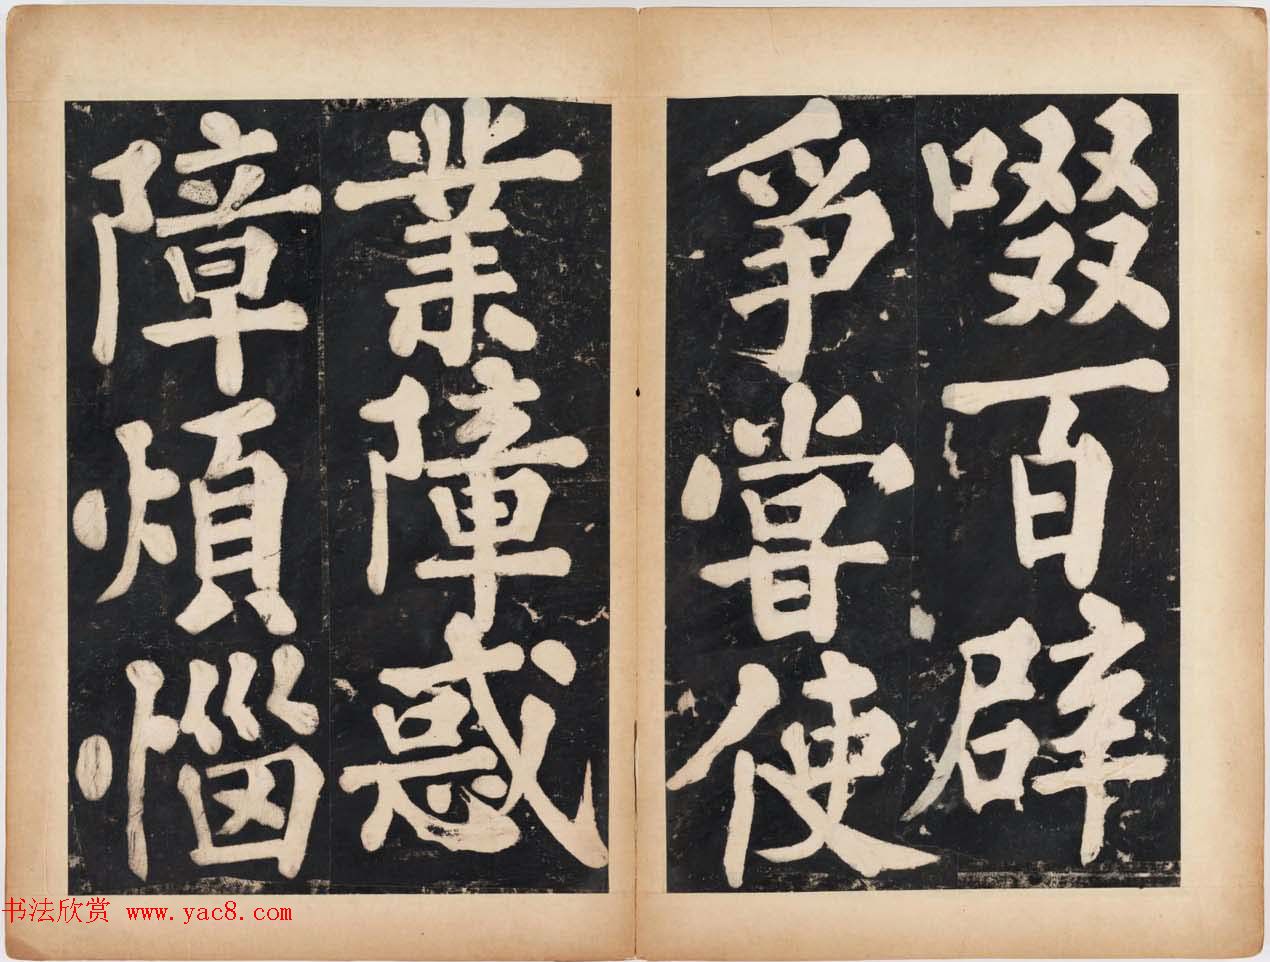 啜百辟
爭嘗使
業障惑
障煩惱
书法欣赏 www.yac8.com